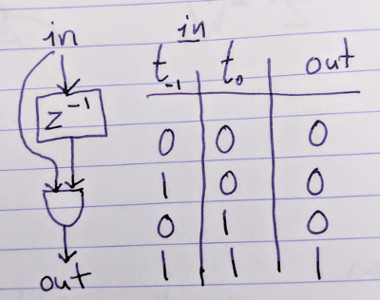 in
z⁻¹
out
in
t₋₁ t₀ out
0 0 0
1 0 0
0 1 0
1 1 1